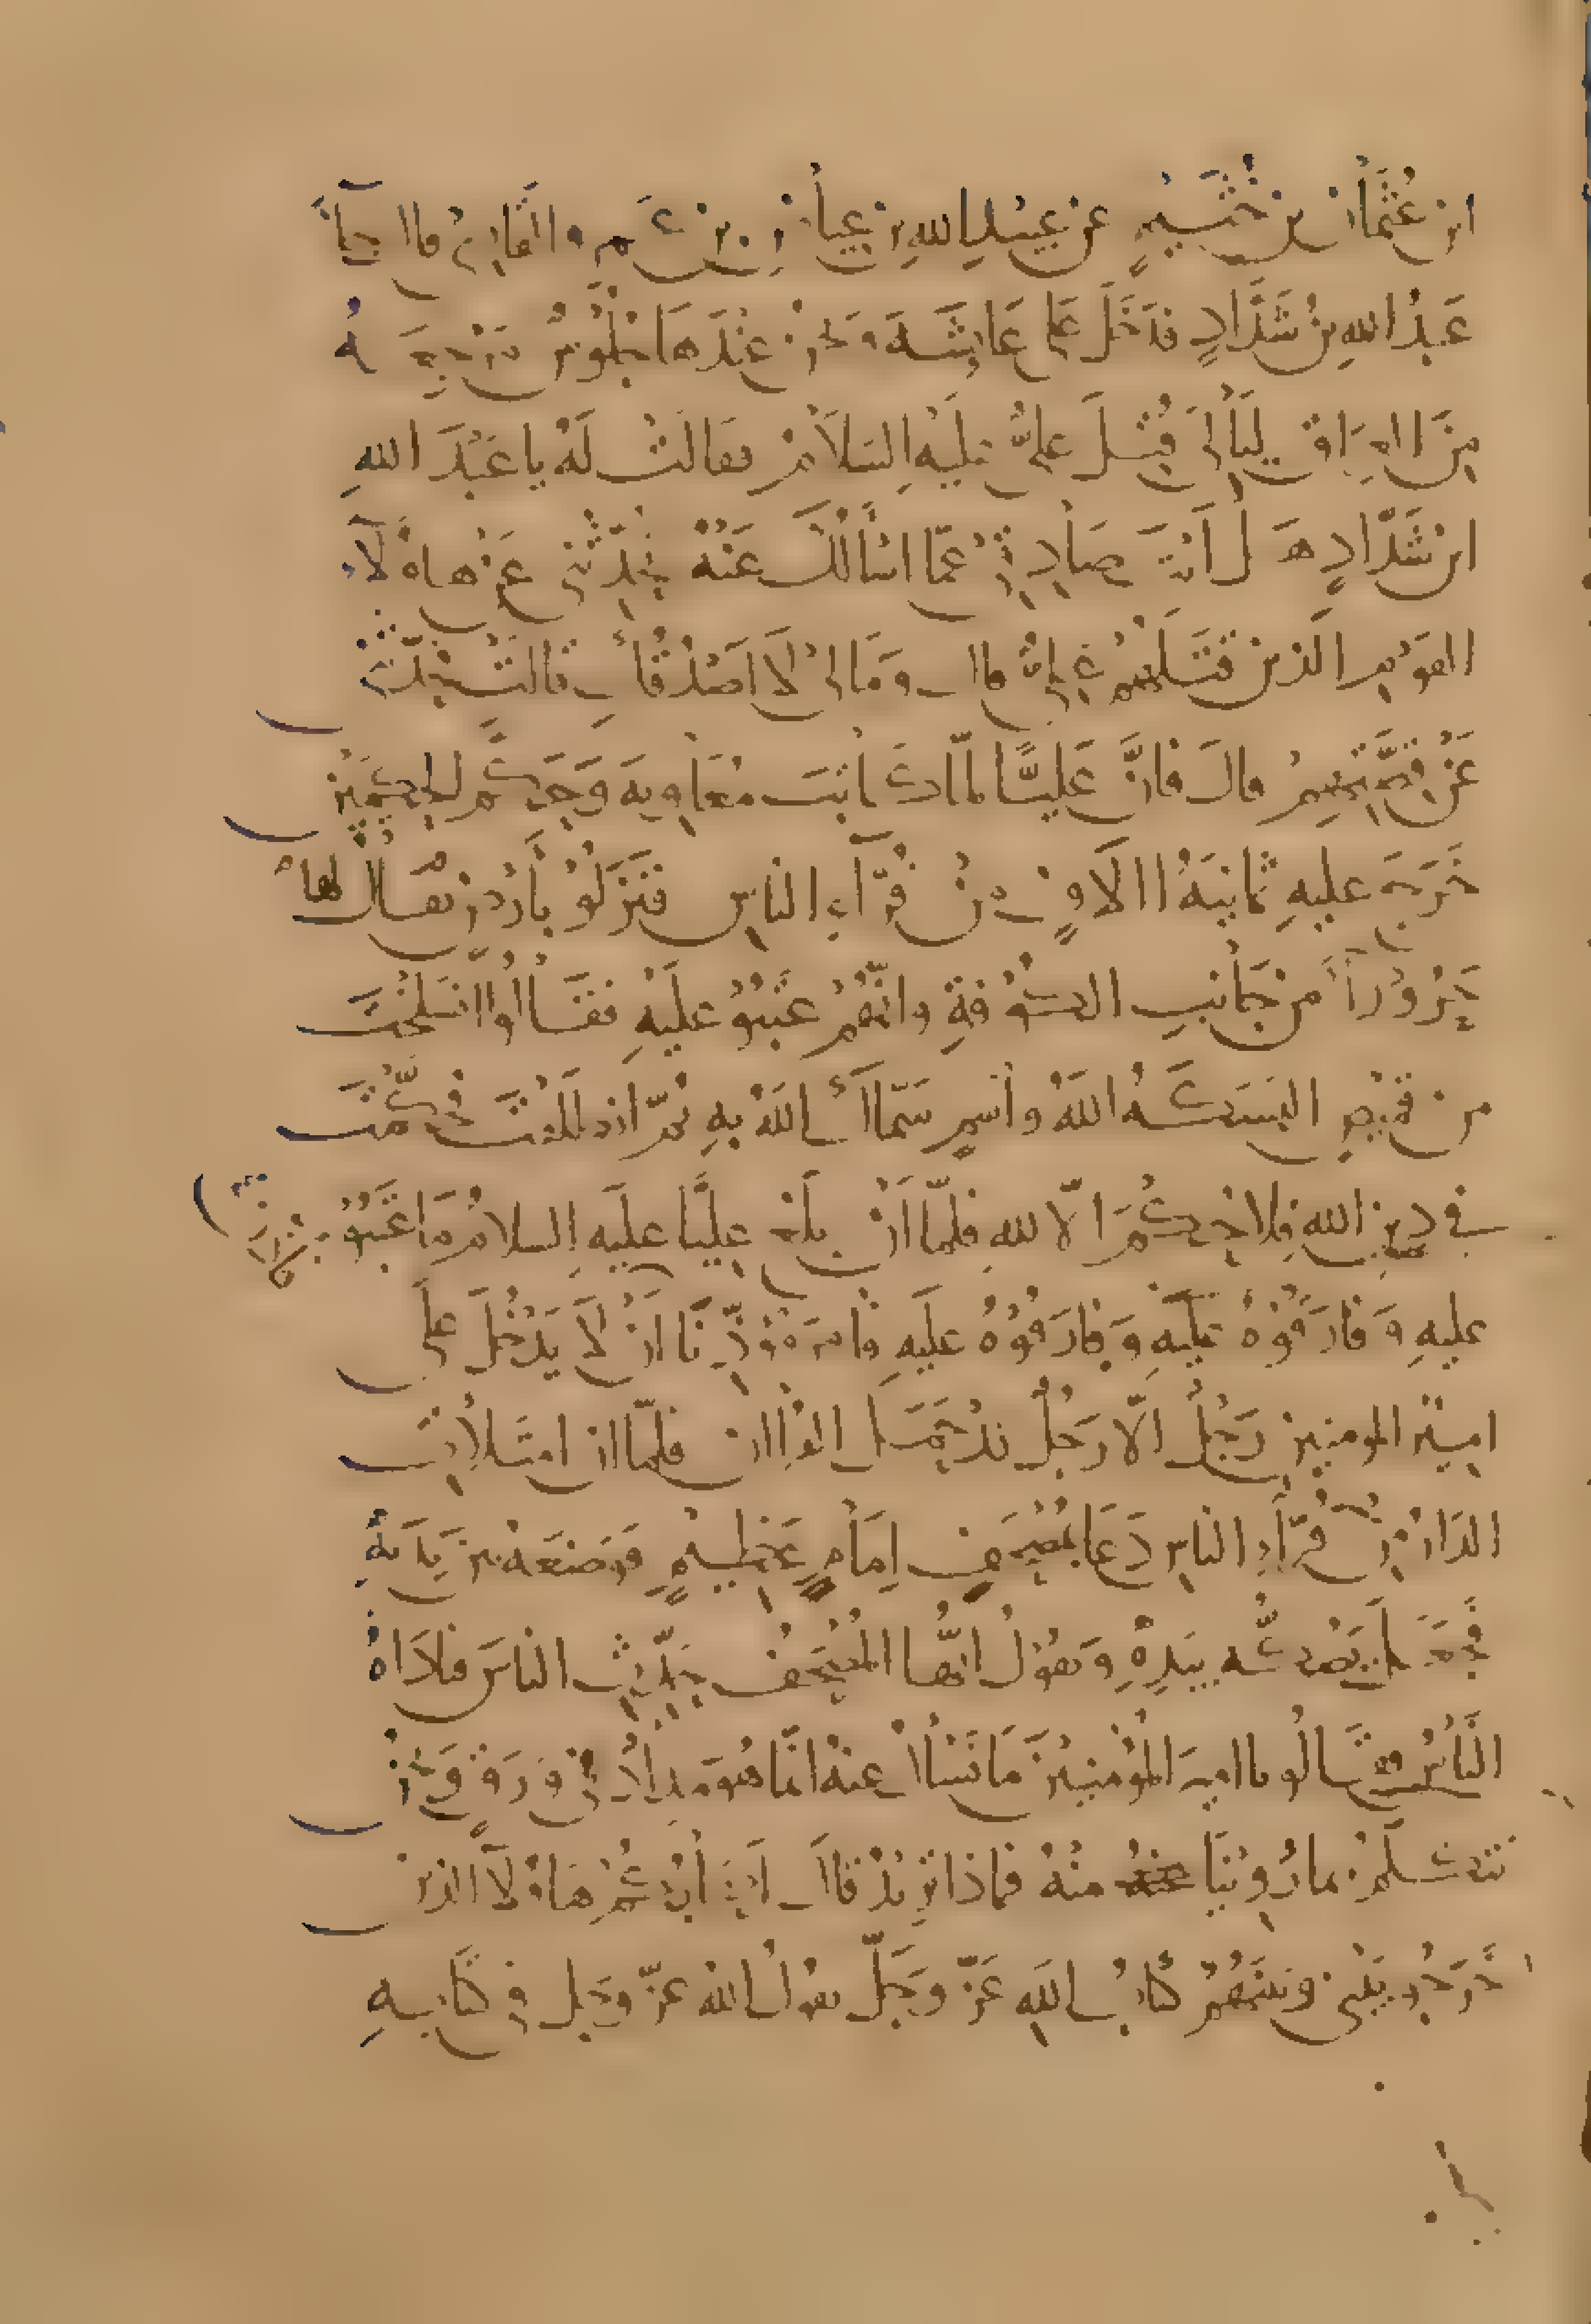 ابن عُثمان بن خُثَيمٍ عن عبيد الله بن عياض بن عمرو القارئ قال جاءَ
عَبدُ الله بنُ شَدَّادٍ فدَخَلَ على عايشَةَ ونحن عِندَها جُلُوسٌ مَرجِعَهُ
مِنَ العِرَاق لياليَ قُتِلَ عليٌّ عليه السَلامُ فقالت لَهُ يا عَبدَ اللهِ
ابن شَدّادٍ هَل أنتَ صادِقِيَّ عمّا اسألك عَنهُ تُحدِّثني عن هاؤلاء
القومِ الذين قتَلَهُم عليٌّ قال ومَا لي لا أصدُقُكِ قالت تُحدِّثني
عَن قِصَّتِهِم قالَ فانَّ عَليًّا لمّا كاتبَ مُعاويةَ وَحَكَّم الحكمين
خَرَجَ عليهِ ثمانيَةُ الافٍ من قُرَّاءِ الناسِ فنَزَلُو بأرضٍ يقال لها
حَرُوراءَ من جَانبِ الكوفةِ وانَّهُم عَتَبُوُ عليهِ فقالُوا انسَلختَ
من قميصٍ البَسَكَهُ اللهُ واسمٍ سَمّاكَ اللهُ بهِ ثمّ انطلقتَ فحكّمتَ
في دينِ الله فلا حُكمَ الّا لله فلمّا أن بلغ عليًّا عليه السلامُ مَا عَتَبُوُ
عليهِ وَفارَقُوهُ عليهِ وَفارَقُوُهُ عليهِ فأمرَ مؤذِّنًا ان لا يَدخُلَ على
امير المومنين رَجُلٌ الّا رَجُلٌ قد حَمَل القران فلمّا ان امتلأت
الدار من قُرّاءِ الناس دَعَا بمُصحَفٍ اِمَامٍ عَظيمٍ فوضعَه بين يديهِ
فجعَل يَصُكُّه بيَدِهِ ويقولُ ايُّها المُصحَفُ حَدِّث الناسَ فنادَاهُ
النَّاسُ فقالُو يا امير المُؤمنين مَا تَسألُ عنهُ انّما هُوَ مِدادٌ في وَرَقٍ وَنحنُ
نتكلّمُ بما رُوِينَا منهُ فماذا تريدُ قال أصحابُكُم هاؤلاء الذين
خَرَجُو بَيني وبينَهُم كتابُ اللهِ عَزّ وجَلّ يقول اللهُ عزّ وجل في كتابهِ